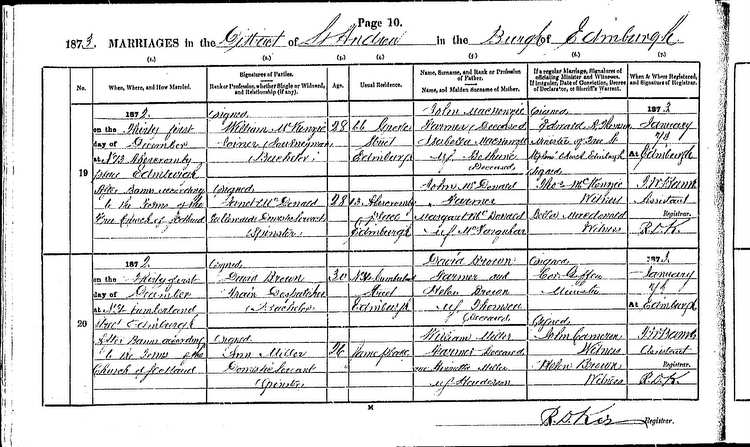 Page 10.
1873. MARRIAGES in the District of St Andrew in the Burgh of Edinburgh
(1.) (2.) (3.) (4.) (5.) (6.) (7.)
No.
When, Where, and How Married.
Signatures of Parties.
Rank or Profession, whether Single or Widowed, and Relationship (if any).
Age.
Usual Residence.
Name, Surname, and Rank or Profession of Father.
Name, and Maiden Surname of Mother.
If a regular Marriage, Signatures of officiating Minister and Witnesses.
If irregular, Date of Conviction, Decree of Declarator, or Sheriff's Warrant.
When & Where Registered, and Signature of Registrar.
19
1872.
on the Thirty first
day of December
at No. 13 Abercromby
place Edinburgh
After Banns according
to the Forms of the
Free Church of Scotland
(Signed)
William McKenzie
(Bachelor)
28
Street
Edinburgh
John MacKenzie
Farmer (Deceased)
Isabella MacKenzie
m.s. Bethune
Deceased
(Signed)
Minister of Free St
Stephens Church Edinburgh
1873
January
2d
at Edinburgh
(Signed)
Janet McDonald
Domestic Servant
(Spinster)
28
13 Abercromby
place
Edinburgh
John McDonald
Farmer
Margaret McDonald
m.s. McFarquhar
(Signed)
Thos McKenzie
Witness
Macdonald
Witness
Assistant
Registrar.
R.D.K.
20
1872.
on the Thirty first
day of December
at No. 4 Cumberland
Street Edinburgh
After Banns according
to the Forms of the
Church of Scotland
(Signed)
David Brown
Grain
(Bachelor)
30
No. 4 Cumberland
Street
Edinburgh
David Brown
Farmer and
Helen Brown
m.s. Thomson
(Deceased)
(Signed)
Minister
1873
January
2d
at Edinburgh
(Signed)
Ann Miller
Domestic Servant
(Spinster)
26
Same place
William Miller
Farmer Deceased
and Henrietta Miller
m.s. Henderson
(Signed)
John Cameron
Witness
Helen Brown
Witness
Assistant
Registrar.
R.D.K.
M
R.D. Ker Registrar.